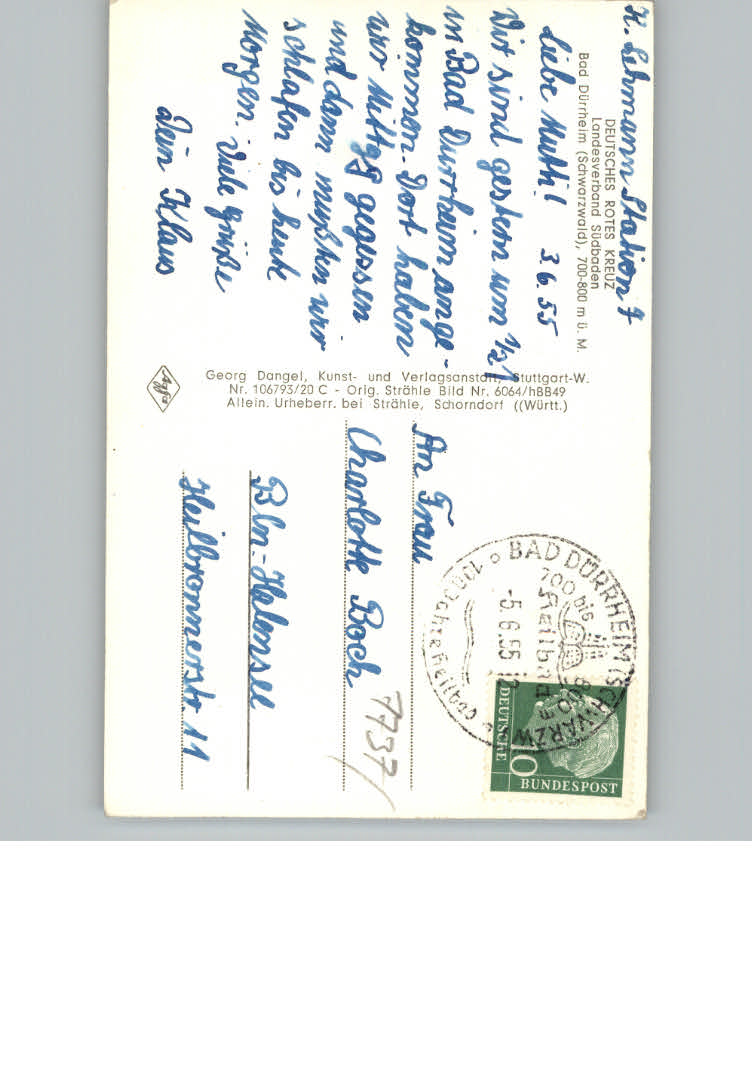 K. Lehmann Station 7
DEUTSCHES ROTES KREUZ
Landesverband Südbaden
Bad Dürrheim (Schwarzwald), 700-800 m ü. M.
Liebe Mutti! 3.6.55
Wir sind gestern um 1/21
in Bad Dürrheim ange-
kommen. Dort haben
wir Mittag gegessen
und dann mußten wir
schlafen bis heute
Morgen. Viele Grüße
Dein Klaus
Agfa
Georg Dangel, Kunst- und Verlagsanstalt, Stuttgart-W.
Nr. 106793/20 C - Orig. Strähle Bild Nr. 6064/hBB49
Allein. Urheberr. bei Strähle, Schorndorf ((Württ.)
BAD DÜRRHEIM (SCHWARZW
700 bis 800 m
Heilbad
-5.6.55
DEUTSCHE
10
BUNDESPOST
An Frau
Charlotte Boch
Bln-Halensee
Heilbronnerstr. 11
7737/